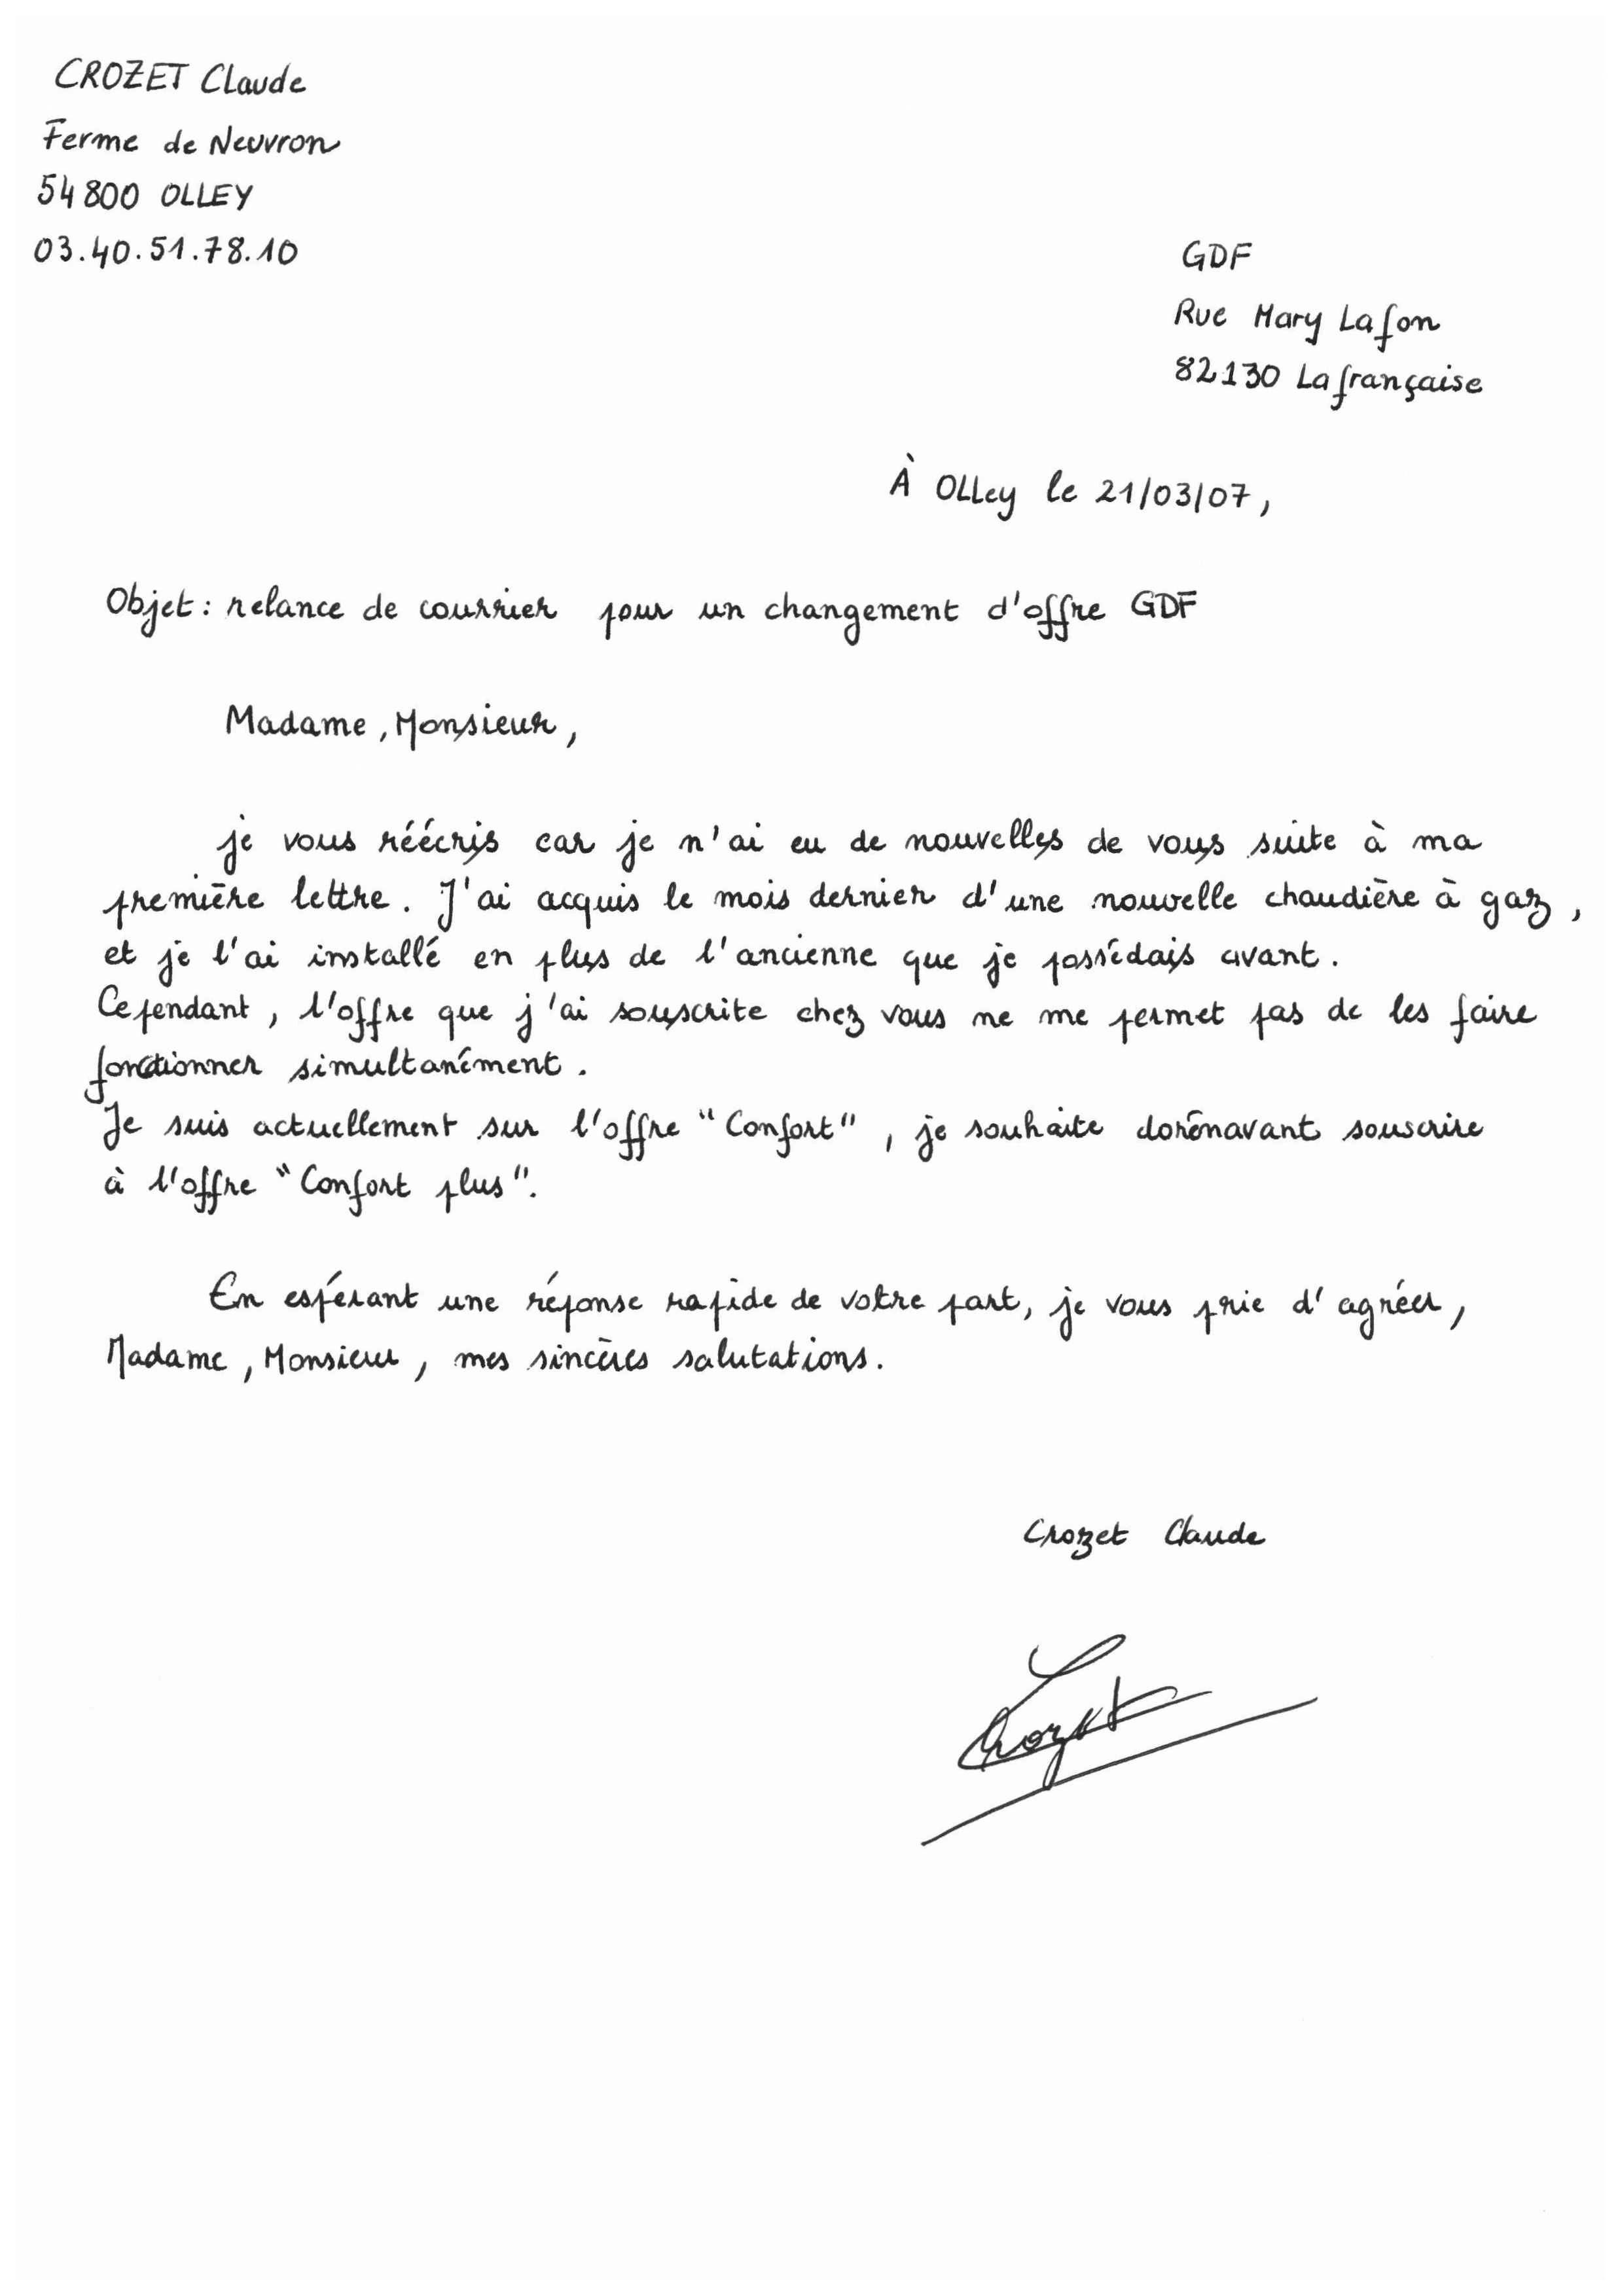 CROZET Claude
Ferme de Neuvron
54800 OLLEY
03.40.51.78.10
GDF
Rue Mary Lafon
82130 Lafrançaise
À OLLey le 21/03/07,
Objet : relance de courrier pour un changement d'offre GDF
Madame, Monsieur,
je vous réécris car je n'ai eu de nouvelles de vous suite à ma
première lettre. J'ai acquis le mois dernier d'une nouvelle chaudière à gaz,
et je l'ai installé en plus de l'ancienne que je possédais avant.
Cependant, l'offre que j'ai souscrite chez vous ne me permet pas de les faire
fonctionner simultanément.
Je suis actuellement sur l'offre "Confort", je souhaite dorénavant souscrire
à l'offre "Confort plus".
En espérant une réponse rapide de votre part, je vous prie d'agréer,
Madame, Monsieur, mes sincères salutations.
Crozet Claude
Crozet